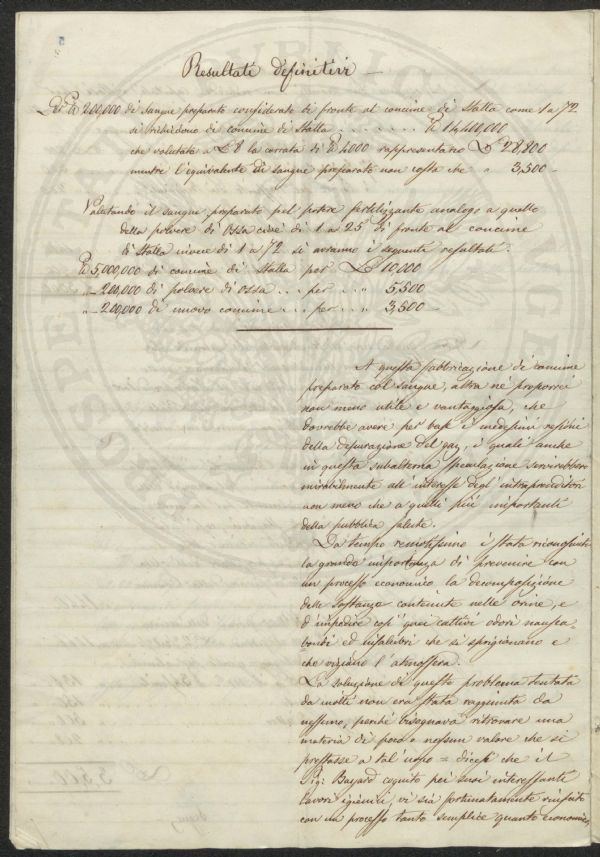 Resultati definitivi —
200,000 di sangue preparato considerato di fronte al concime di stalla come 1 a 72
si richiedono di concime di stalla . . . . . . . 14,400,000
che valutate a £ 8 la carrata di 4000 rappresentano £ 28,800
mentre l'equivalente di sangue preparato non costa che " 3,500 —
Valutando il sangue preparato pel potere fertilizzante analogo a quello
della polvere di ossa cioè di 1 a 25 di fronte al concime
di stalla invece di 1 a 72 si avranno i seguenti resultati:
5,000,000 di concime di stalla per £ 10,000
" — 200,000 di polvere di ossa . . . per . . " 5,500
" — 200,000 di nuovo concime . . . per . . " 3,500 —
A questa fabbricazione di concime
preparato col sangue, altra ne proporrei
non meno utile e vantaggiosa, che
dovrebbe avere per base i medesimi residui
della depurazione del gaz, i quali anche
in questa subalterna speculazione servirebbero
mirabilmente all'interesse degl'intraprenditori
non meno che a quelli più importanti
della pubblica salute.
Da tempo remotissimo è stata riconosciuta
la grande importanza di prevenire con
un processo economico la decomposizione
delle sostanze contenute nelle orine, e
d'impedire così quei cattivi odori nausea-
bondi ed insalubri che si sprigionano e
che viziano l'atmosfera.
La soluzione di questo problema tentata
da molti non era stata raggiunta da
nessuno, perché bisognava ritrovare una
materia di poco o nessun valore che si
prestasse a tal'uopo = dicesi che il
Sig: Bayard cognito pei suoi interessanti
lavori igienici, vi sia fortunatamente riuscito
con un processo tanto semplice quanto economico,